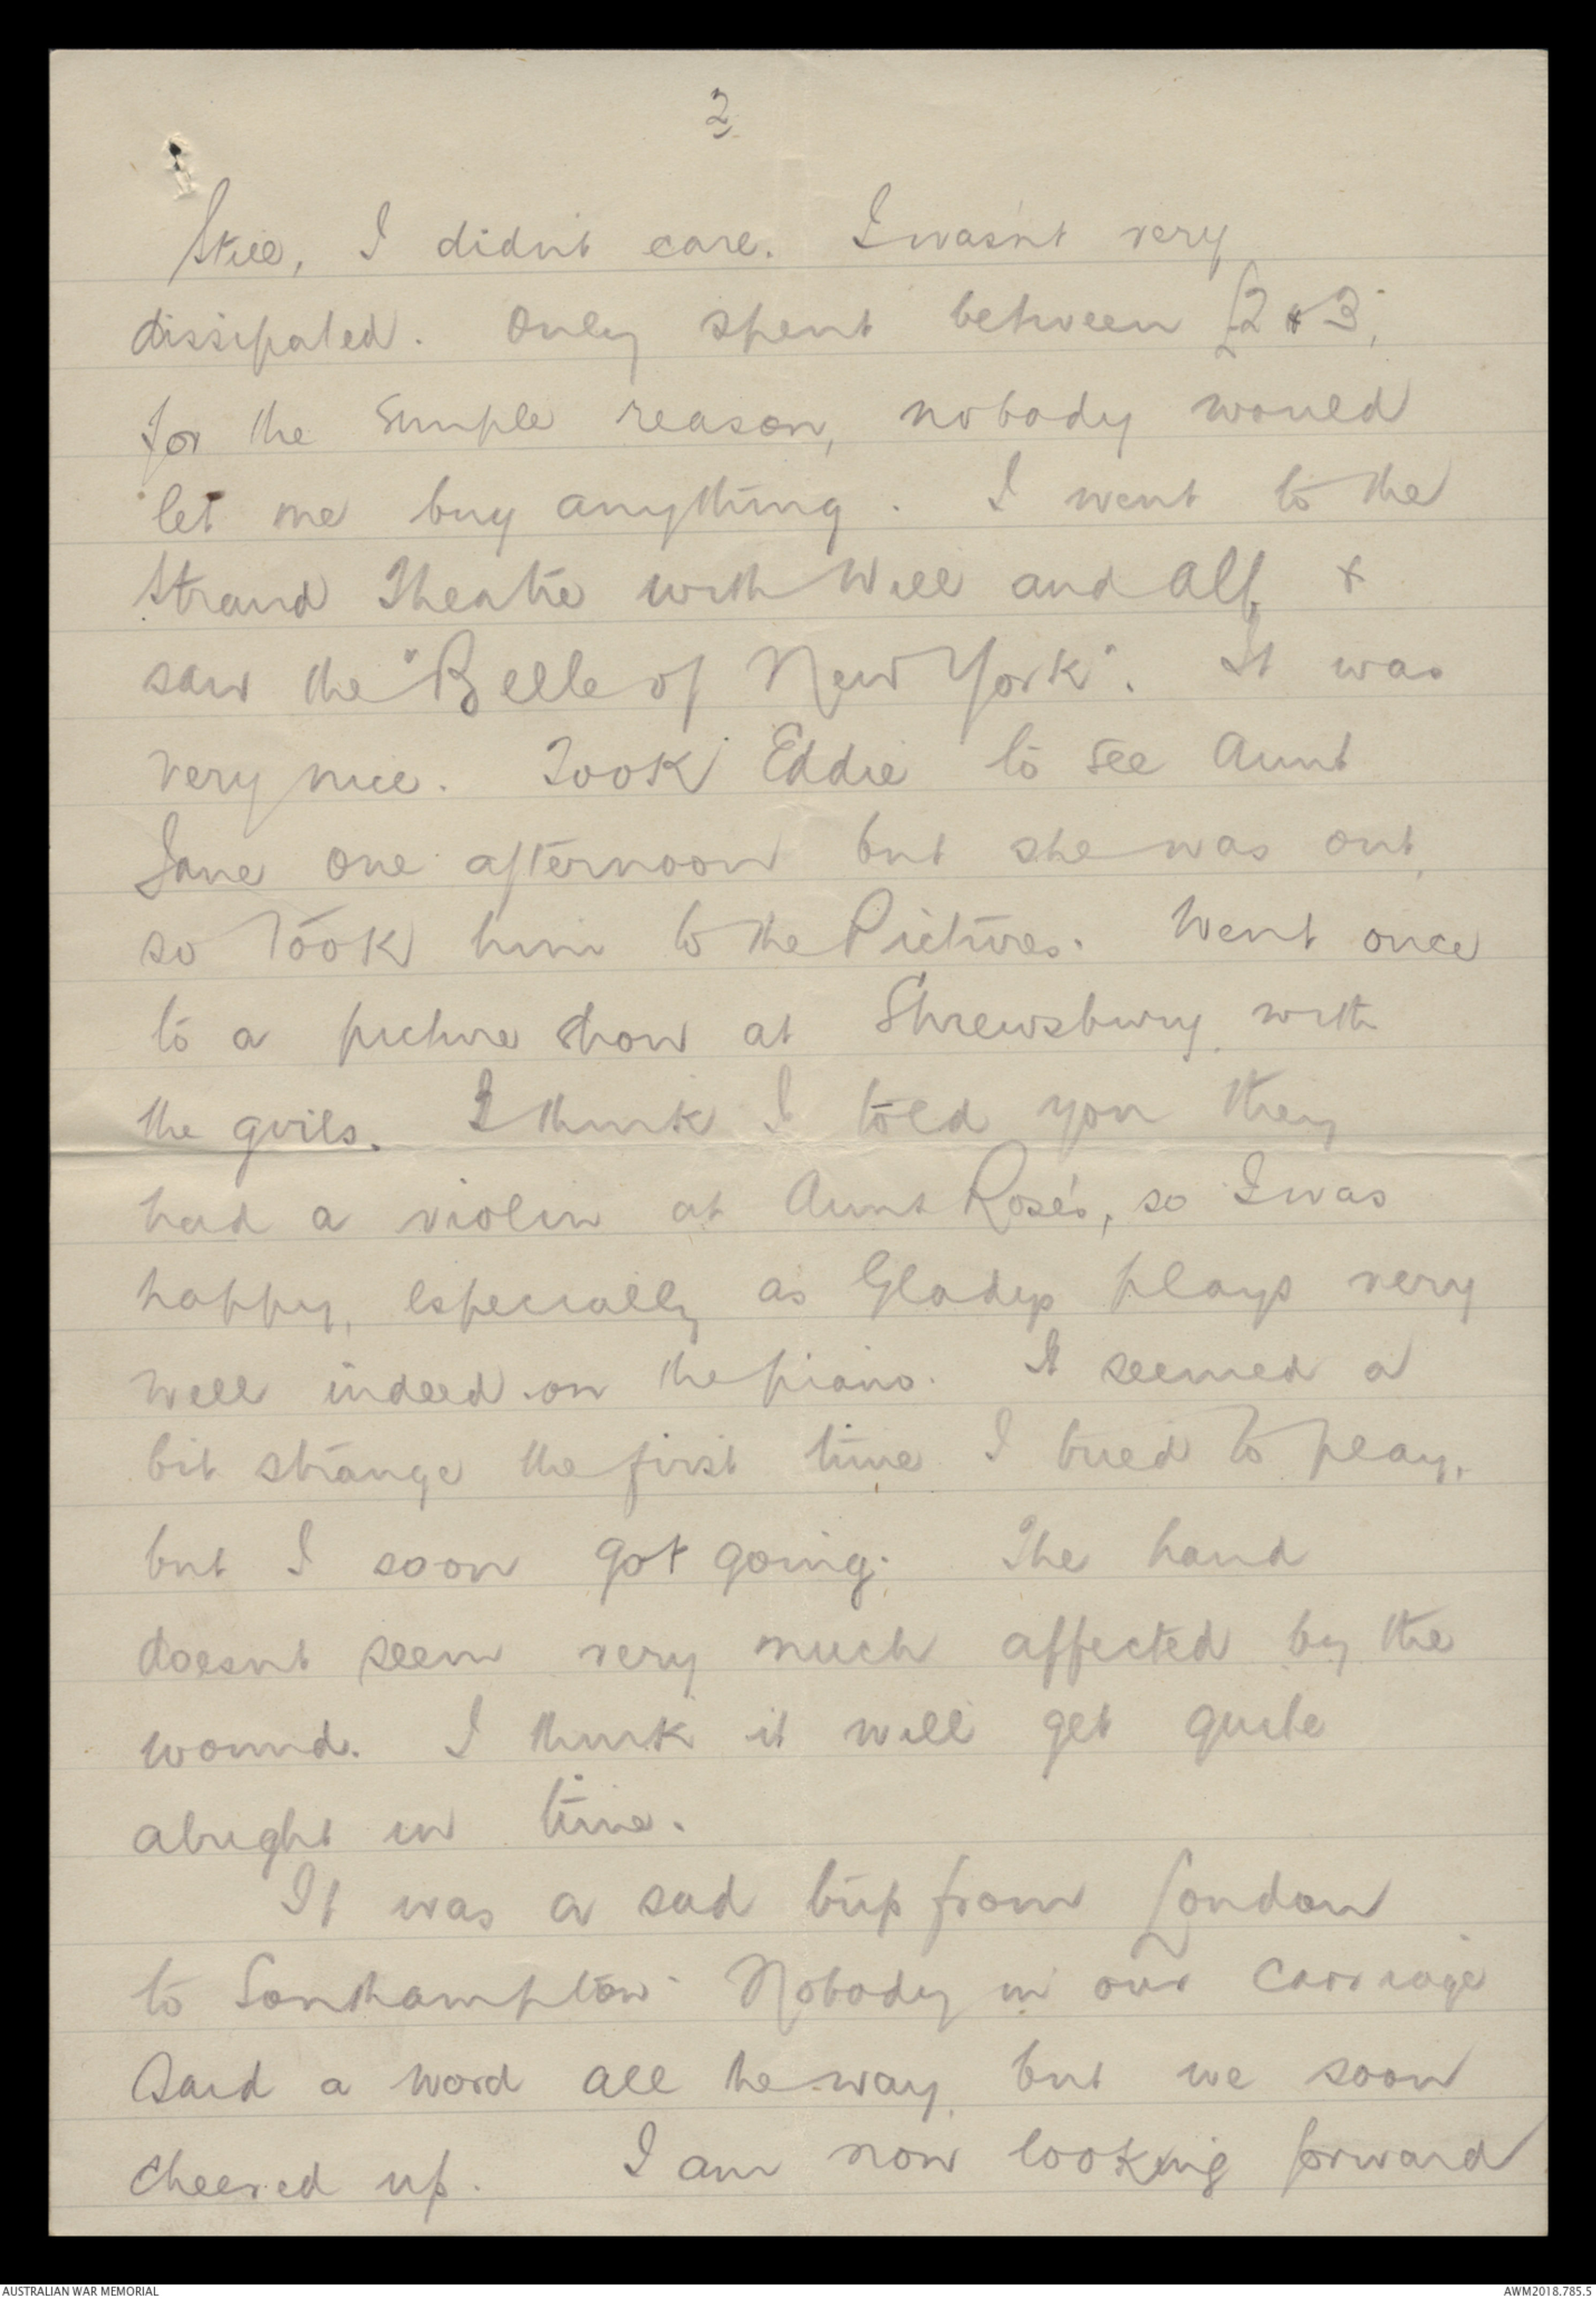 2
Still, I didn't care. I wasn't very
dissipated. Only spent between £2 & 3,
for the simple reason, nobody would
let me buy anything. I went to the
Strand Theatre with Will and Alf, &
saw the "Belle of New York". It was
very nice. Took Eddie to see Aunt
Jane one afternoon but she was out,
so took him to the Pictures. Went once
to a picture show at Shrewsbury with
the girls. I think I told you they
had a violin at Aunt Rose's, so I was
happy, especially as Gladys plays very
well indeed on the piano. It seemed a
bit strange the first time I tried to play,
but I soon got going. The hand
doesnt seem very much affected by the
wound. I think it will get quite
alright in time.
It was a sad trip from London
to Southampton. Nobody in our carriage
said a word all the way, but we soon
cheered up. I am now looking forward
AUSTRALIAN WAR MEMORIAL
AWM2018.785.5